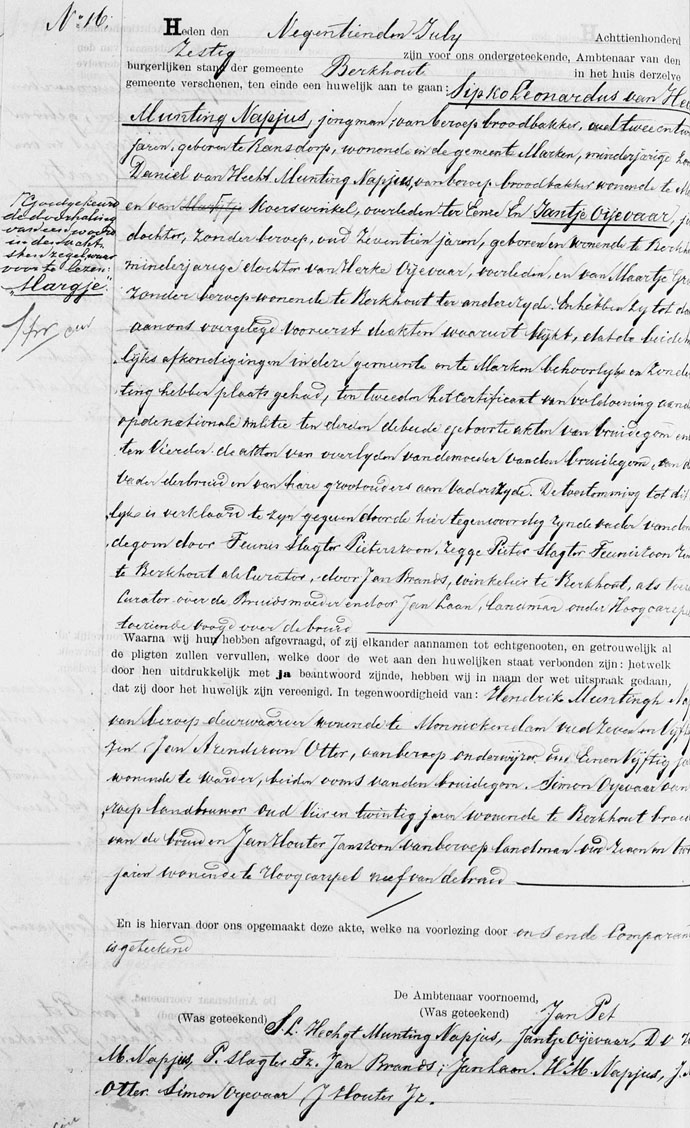 No. 16.
Heden den Negentienden July Achttienhonderd
Zestig zijn voor ons ondergeteekende, Ambtenaar van den
burgerlijken stand der gemeente Berkhout in het huis derzelve
gemeente verschenen, ten einde een huwelijk aan te gaan: Sipko Leonardus van He
Munting Napjus, jongman, van beroep broodbakker, oud tweeentwi
jaren, geboren te Ransdorp, wonende in de gemeente Marken, minderjarige zoo
Daniel van Hecht Munting Napjus, van beroep broodbakker wonende te M
en van Koerswinkel, overleden ter Eenre En Jantje Oijevaar, j
dochter, zonder beroep, oud Zeventien jaren, geboren en wonende te Berkh
minderjarige dochter van Herke Oijevaar, overleden, en van Maartje Gro
zonder beroep wonende te Berkhout ter andere zyde. En hebben zy tot da
aan ons overgelegd vooreerst de akten waaruit blykt, dat de beide h
lyks afkondigingen in deze gemeente en te Marken behoorlyk en zonde
ting hebben plaats gehad, ten tweeden het certificaat van voldoening aan d
op de nationale militie ten derden de beide geboorte akten van bruidegom en
ten vierden de akten van overlyden van de moeder van den bruidegom, van d
vader der bruid en van hare grootouders aan vaderszyde. De toestemming tot dit
lyk is verklaard te zyn gegeven door de hier tegenwoordig zynde vader van den
degom door Teunis Slagter Pieterszoon, zegge Pieter Slagter Teuniszoon
te Berkhout als Curator, door Jan Brands, winkelier te Berkhout, als toez
Curator over de Bruids moeder en door Jan Laan, landman onder Hoogcarspe
toeziende voogd over de bruid
Waarna wij hun hebben afgevraagd, of zij elkander aannamen tot echtgenooten, en getrouwelijk al
de pligten zullen vervullen, welke door de wet aan den huwelijken staat verbonden zijn: hetwelk
door hen uitdrukkelijk met ja beantwoord zijnde, hebben wij in naam der wet uitspraak gedaan,
dat zij door het huwelijk zijn vereenigd. In tegenwoordigheid van: Hendrik Muntingh Na
van beroep deurwaarder wonende te Monnickendam oud Zeven en vyft
ren, Jan Arendszoon Otter, van beroep onderwyzer oud Eenen Vyftig ja
wonende te Warder, beiden ooms van den bruidegom. Simon Oyevaar van
roep landbouwer oud vier en twintig jaren wonende te Berkhout broe
van de bruid en Jan Houter Janszoon van beroep landman oud Zeven en tw
jaren wonende te Hoogcarspel neef van de bruid
En is hiervan door ons opgemaakt deze akte, welke na voorlezing door ons en de Comparan
is geteekend
De Ambtenaar voornoemd,
(Was geteekend) Jan Pet
(Was geteekend) S. L. Hechgt Munting Napjus, Jantje Oijevaar, D. V. H
M. Napjus, P. Slagter Tz. Jan Brands, Jan Laan. H. M. Napjus, J. A
Otter. Simon Oyevaar J Houter Jz.
Goedgekeurd
de doorhaling
van een woord
in den acht
sten regel, waar
voor te lezen:
"Margje."